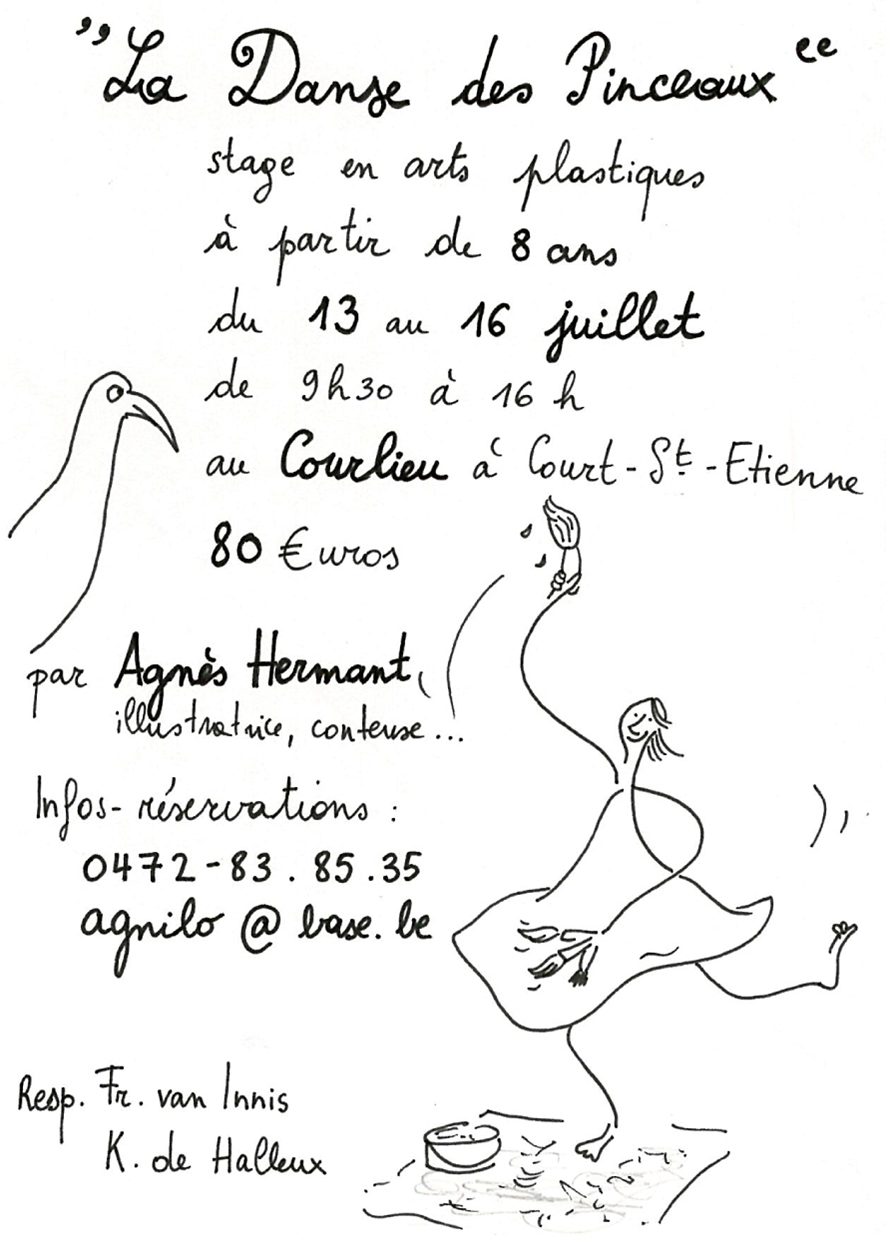 "La Danse des Pinceaux"
stage en arts plastiques
à partir de 8 ans
du 13 au 16 juillet
de 9h30 à 16 h
au Courlieu à Court-St-Etienne
80 €uros
par Agnès Hermant,
illustratrice, conteuse...
Infos-réservations :
0472-83.85.35
agnilo@base.be
Resp. Fr. van Innis
K. de Halleux